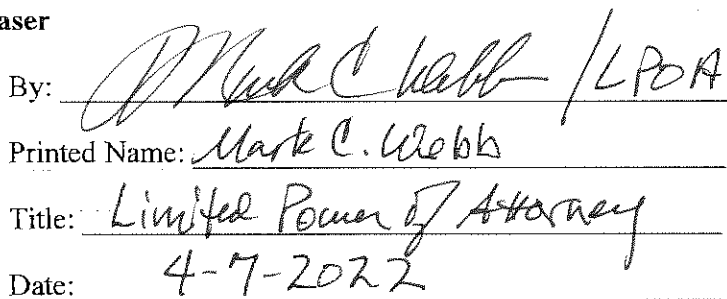 aser
By: Mark C Webb /LPOA
Printed Name: Mark C. Webb
Title: Limited Power of Attorney
Date: 4-7-2022